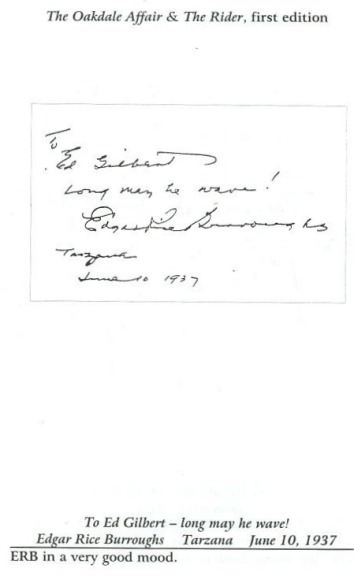 The Oakdale Affair & The Rider, first edition
To
Ed Gilbert
Long may he wave!
Edgar Rice Burroughs
Tarzana
June 10 1937
To Ed Gilbert – long may he wave!
Edgar Rice Burroughs Tarzana June 10, 1937
ERB in a very good mood.